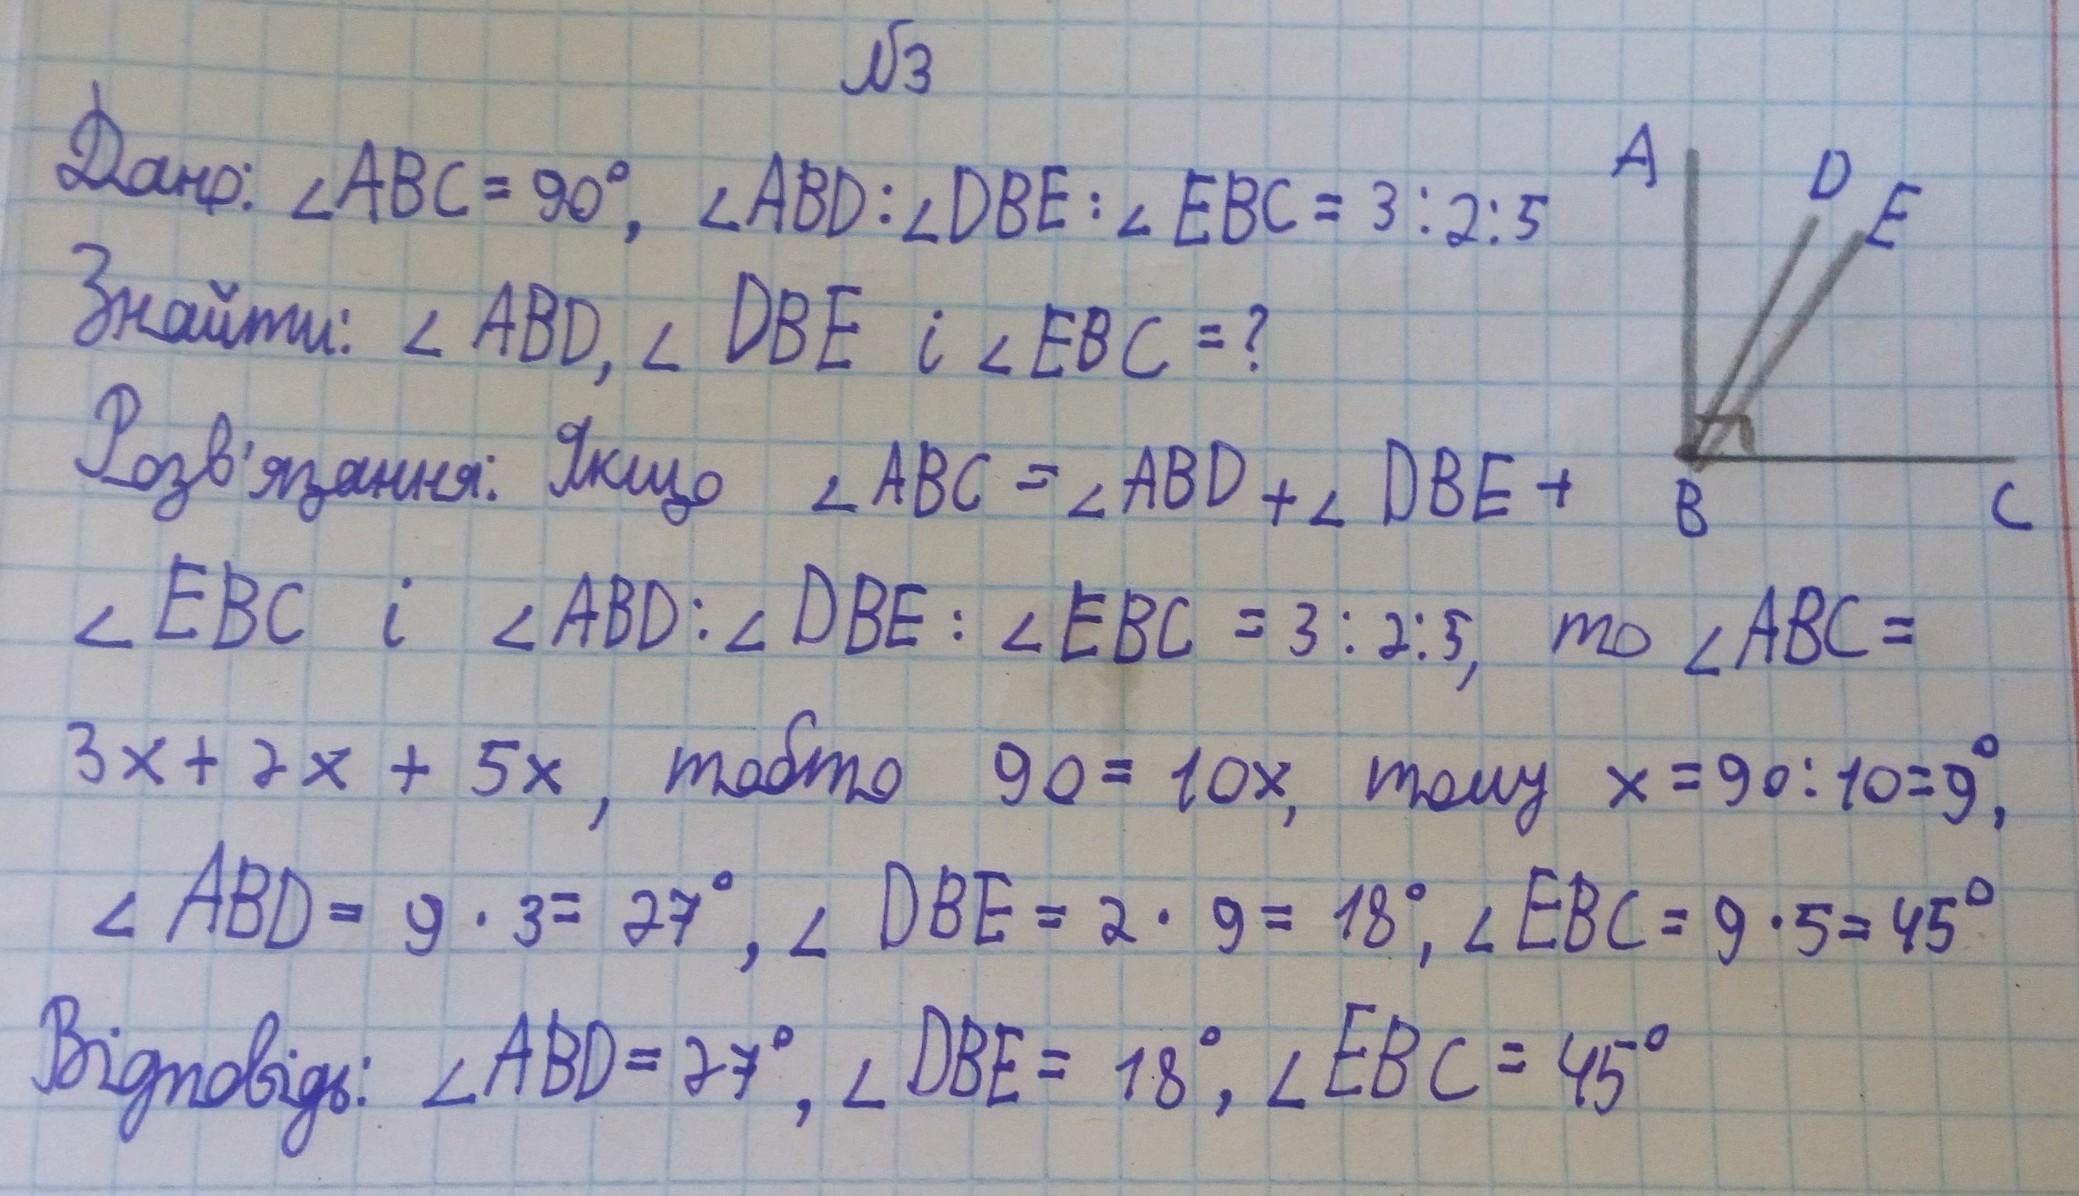 №3
Дано: ∠ABC = 90°, ∠ABD : ∠DBE : ∠EBC = 3 : 2 : 5
Знайти: ∠ABD, ∠DBE і ∠EBC = ?
Розв'язання: Якщо ∠ABC = ∠ABD + ∠DBE +
∠EBC і ∠ABD : ∠DBE : ∠EBC = 3 : 2 : 5, то ∠ABC =
3x + 2x + 5x, тобто 90 = 10x, тому x = 90 : 10 = 9°,
∠ABD = 9 · 3 = 27°, ∠DBE = 2 · 9 = 18°, ∠EBC = 9 · 5 = 45°
Відповідь: ∠ABD = 27°, ∠DBE = 18°, ∠EBC = 45°
A
D
E
B
C